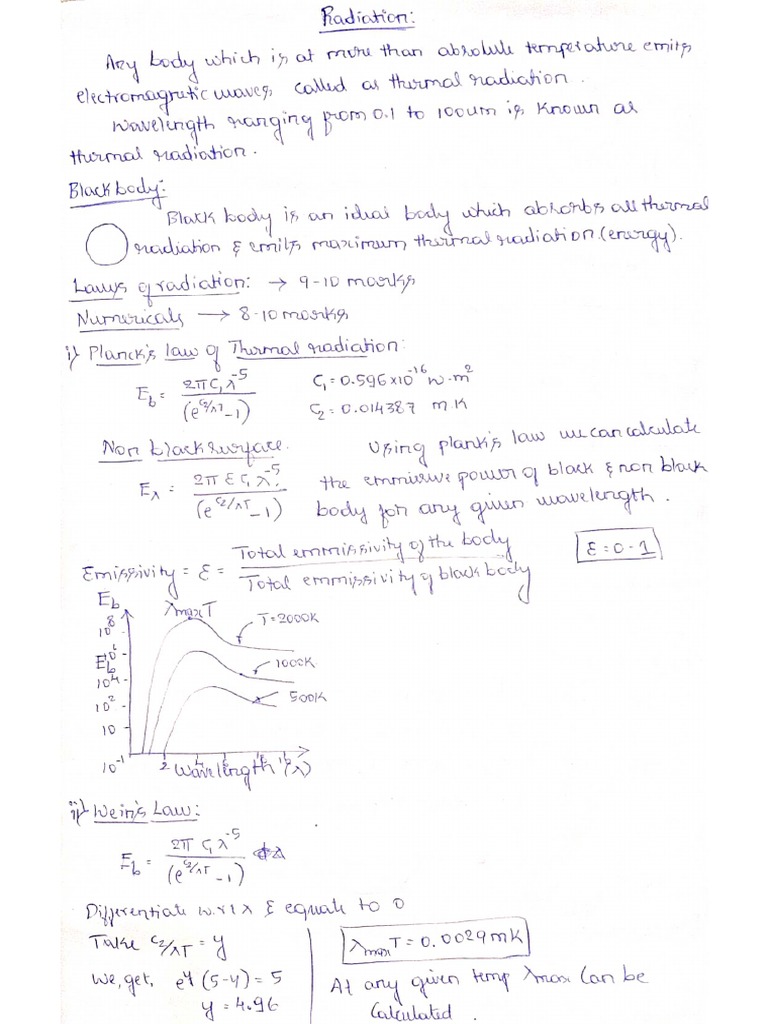 Radiation:
Any body which is at more than absolute temperature emits
electromagnetic waves, called as thermal radiation.
Wavelength ranging from 0.1 to 100um is known as
thermal radiation.
Black body:
Black body is an ideal body which absorbs all thermal
radiation & emits maximum thermal radiation (energy).
Laws of radiation: → 9-10 marks
Numericals → 8-10 marks
i) Planck's law of Thermal radiation:
E_b = 2πC₁λ⁻⁵ / (e^(C₂/λT) - 1) C₁ = 0.596×10⁻¹⁶ W.m²
C₂ = 0.014387 m.K
Non black surface. Using plank's law we can calculate
E_λ = 2π ε C₁ λ⁻⁵ / (e^(C₂/λT) - 1) the emmisive power of black & non black
body for any given wavelength.
Emissivity = ε = Total emmissivity of the body / Total emmissivity of black body ε = 0-1
E_b
λmax T
T = 2000K
10⁸
10⁶
E_b
1000K
10⁴
500K
10²
10
10⁻¹
2
Wavelength (λ)
ii) Wein's Law:
E_b = 2π C₁ λ⁻⁵ / (e^(C₂/λT) - 1)
Differentiate w.r.t λ & equate to 0
Take C₂/λT = y
We, get, e^y (5-y) = 5
y = 4.96
λmax T = 0.0029 mK
At any given temp λmax can be
calculated.